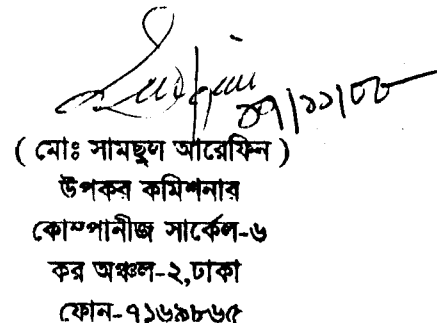 ০৭/১১/০৮
( মোঃ সামছুল আরেফিন )
উপকর কমিশনার
কোম্পানীজ সার্কেল-৬
কর অঞ্চল-২,ঢাকা
ফোন-৭১৬৯৮৬৫